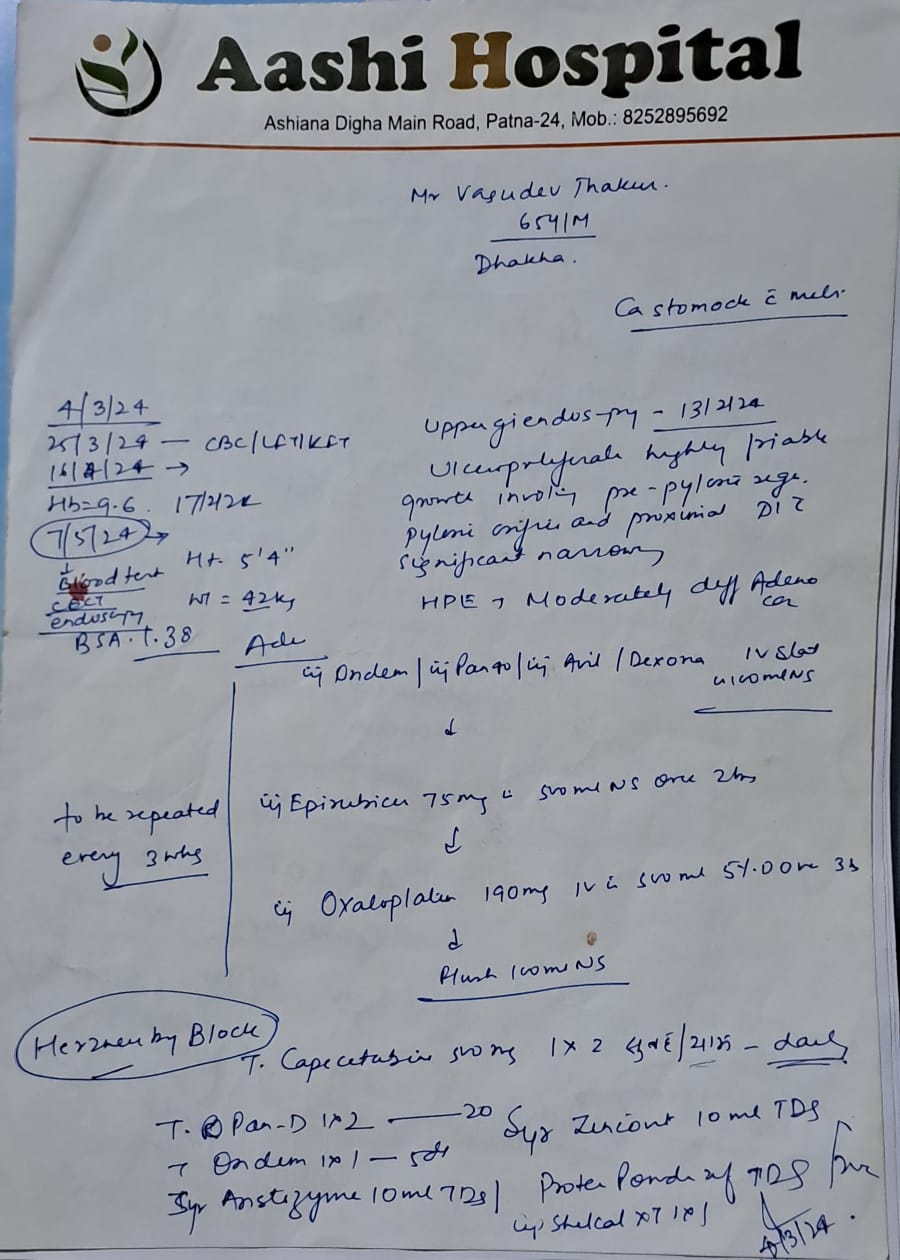 Aashi Hospital
Ashiana Digha Main Road, Patna-24, Mob.: 8252895692
Mr Vasudev Thakur.
65Y/M
Dhakha.
Ca stomock c̄ mets.
4/3/24
25/3/24 — CBC/LFT/KFT
16/4/24 →
Hb=9.6. 17/2/24
7/5/24 →
↓
Blood test
CECT
endoscopy
Ht. 5'4"
WT = 42kg
BSA. 1.38
Upper gi endoscopy - 13/2/24
Ulceroproliferate highly friable
growth involving pre-pyloric rege.
pyloric orifice and proximal D1 c̄
significant narrowing
HPE → Moderately diff Adeno
car
Adv
inj Ondem | inj Pan 40 | inj Avil / Dexona IV stat
in 100ml NS
↓
inj Epirubicin 75mg in 500ml NS over 2hrs
↓
inj Oxaloplatin 190mg IV in 500ml 5%D over 3h
↓
Flush 100ml NS
to be repeated
every 3 wks
Her2neu by Block
T. Capecetabin 500mg 1 x 2 - daily
T. Pan-D 1x2 — 20
T Ondem 1x1 — 5d
Syr Aristozyme 10ml TDS
Syr Zincovit 10ml TDS
Protein Powder TDS
Shelcal XT 1x1
4/3/24.